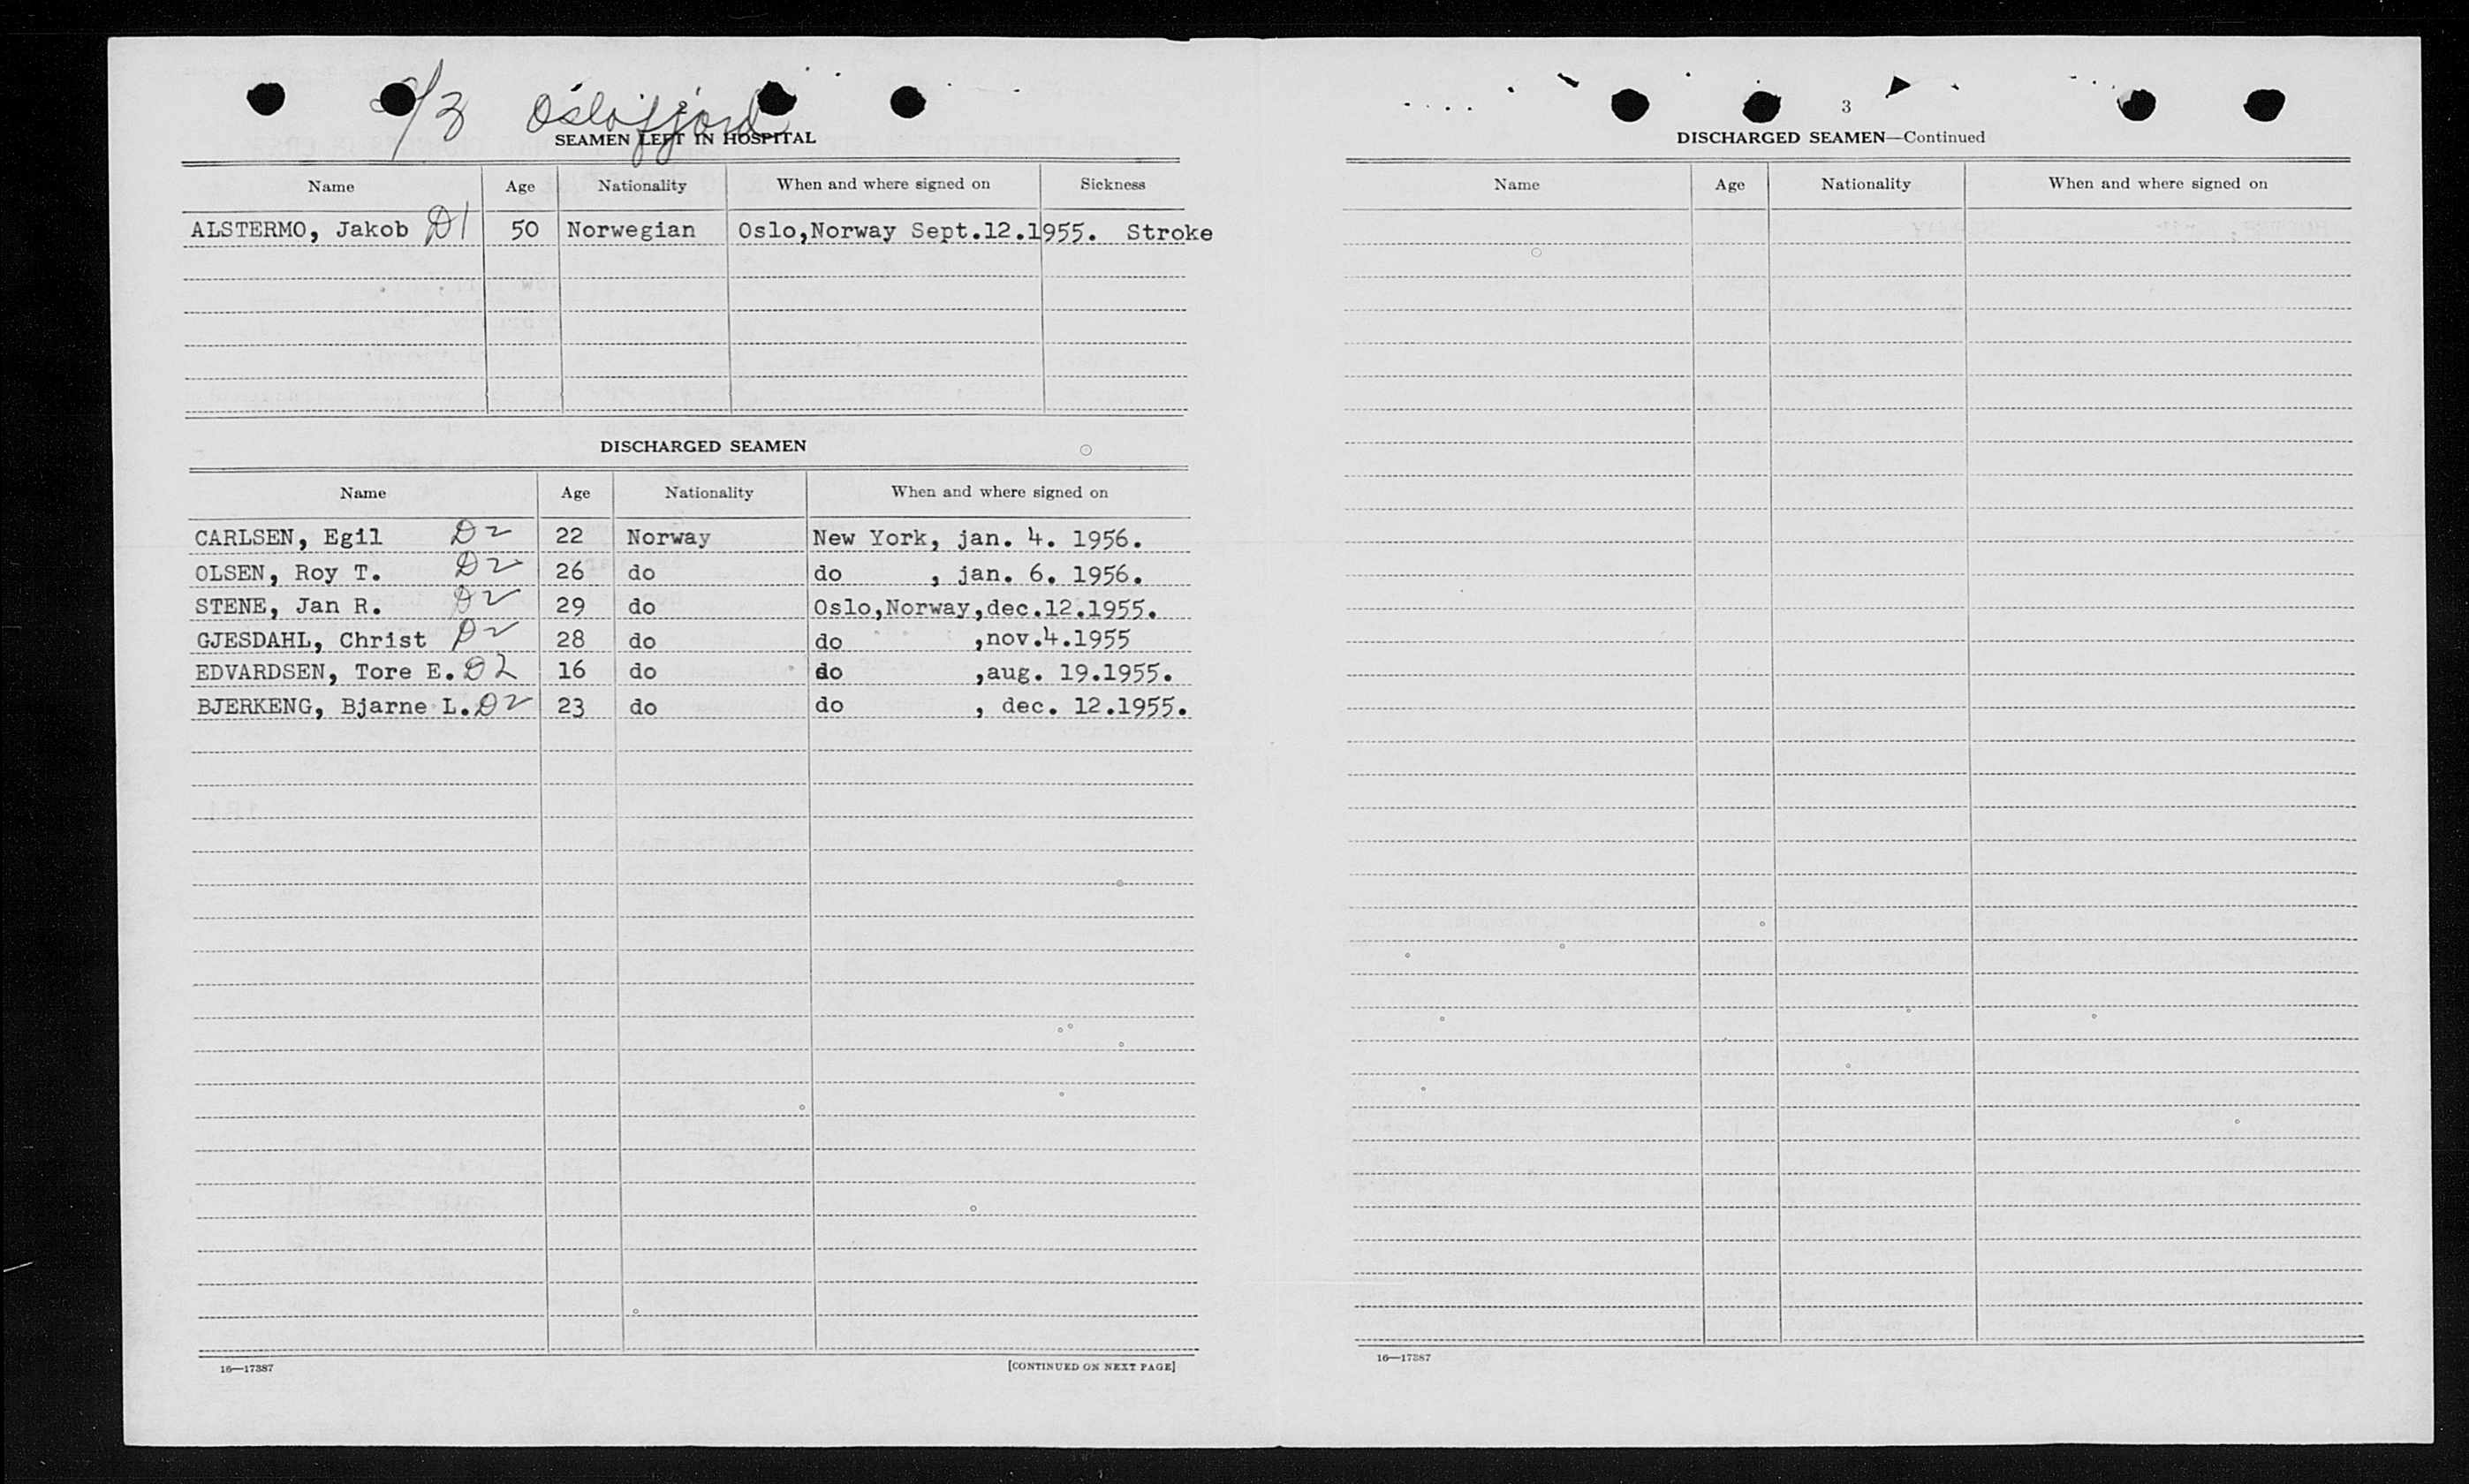 2/3 Oslofjord
SEAMEN LEFT IN HOSPITAL
Name Age Nationality When and where signed on Sickness
ALSTERMO, Jakob D1 50 Norwegian Oslo,Norway Sept.12.1955. Stroke
DISCHARGED SEAMEN
Name Age Nationality When and where signed on
CARLSEN, Egil D2 22 Norway New York, jan. 4. 1956.
OLSEN, Roy T. D2 26 do do , jan. 6. 1956.
STENE, Jan R. D2 29 do Oslo,Norway,dec.12.1955.
GJESDAHL, Christ D2 28 do do ,nov.4.1955
EDVARDSEN, Tore E. D2 16 do do ,aug. 19.1955.
BJERKENG, Bjarne L. D2 23 do do , dec. 12.1955.
16—17387 [CONTINUED ON NEXT PAGE]
3
DISCHARGED SEAMEN—Continued
Name Age Nationality When and where signed on
16—17387